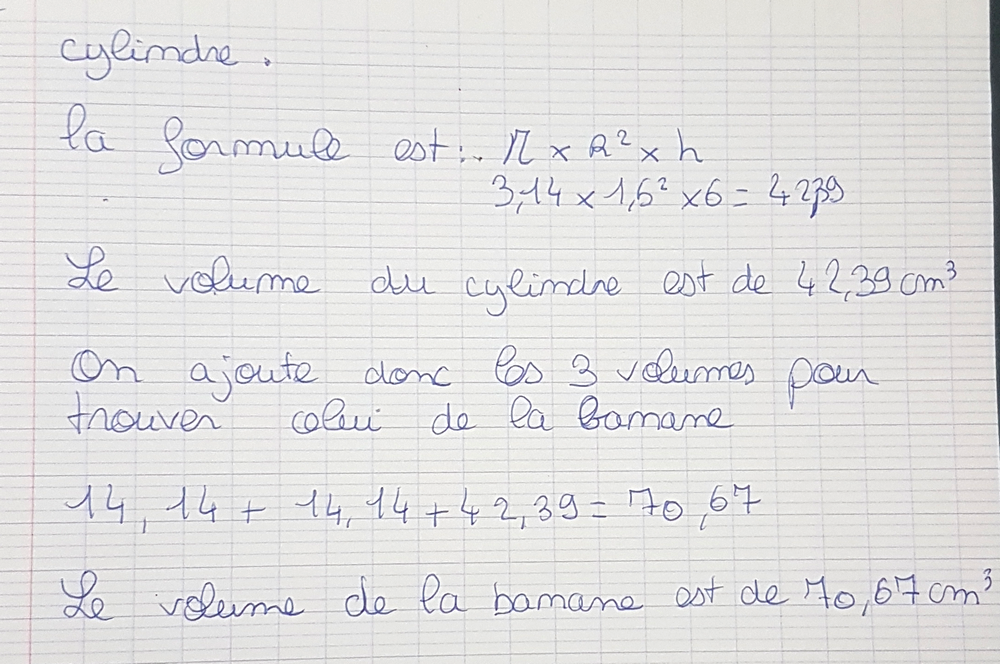 cylindre.
la formule est : π × R² × h
3,14 × 1,5² × 6 = 42,39
Le volume du cylindre est de 42,39 cm³
On ajoute donc les 3 volumes pour
trouver celui de la banane
14,14 + 14,14 + 42,39 = 70,67
Le volume de la banane est de 70,67 cm³